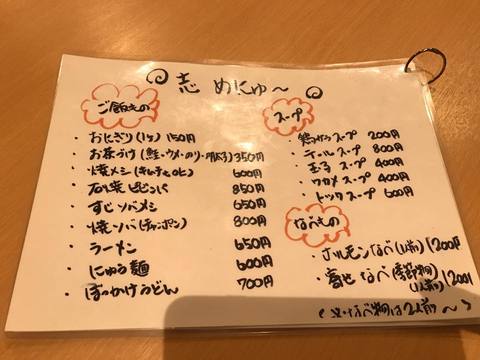 志 めにゅ〜
ご飯もの
・おにぎり(1ヶ) 150円
・お茶づけ(鮭・ウメ・のり・明太子) 350円
・焼メシ(キムチorエビ) 600円
・石焼ビビンバ 850円
・すじソバメシ 650円
・焼ソバ(チャンポン) 800円
・ラーメン 650円
・にゅう麺 600円
・ぼっかけうどん 700円
スープ
・鶏ガラスープ 200円
・テールスープ 800円
・玉子スープ 400円
・ワカメスープ 400円
・トックスープ 600円
なべもの
・ホルモンなべ(1人前) 1200円
・寄せなべ(季節物)(1人前) 1200円
(※・なべ物は2人前〜)